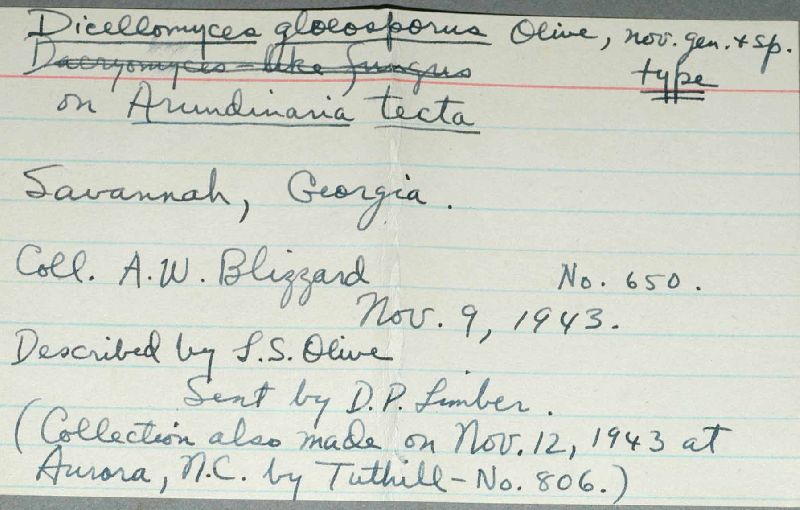 Dicellomyces gloeosporus Olive, nov. gen. & sp.
Dacryomyces-like fungus type
on Arundinaria tecta
Savannah, Georgia.
Coll. A.W. Blizzard No. 650.
Nov. 9, 1943.
Described by L.S. Olive
Sent by D.P. Limber.
(Collection also made on Nov. 12, 1943 at
Aurora, N.C. by Tuthill-No. 806.)